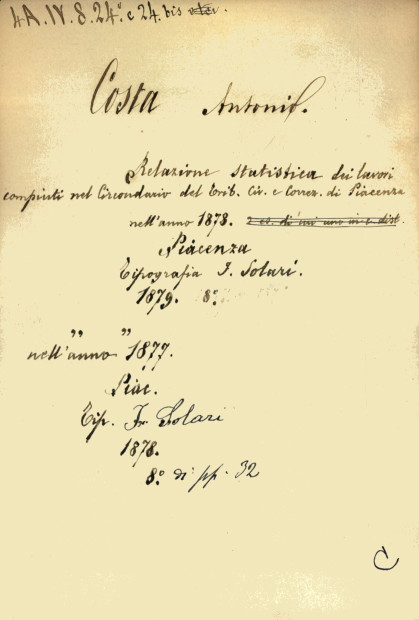 4A.IV.8.24° e 24. bis
Costa Antonio.
Relazione statistica dei lavori
compiuti nel Circondario del Trib. Civ. e Correz. di Piacenza
nell'anno 1878. 2 es. di cui uno in c. dist.
Piacenza
Tipografia F. Solari.
1879. 8°.
" "
nell'anno 1877.
Piac.
Tip. F. Solari
1878.
8° di pp. 32
C